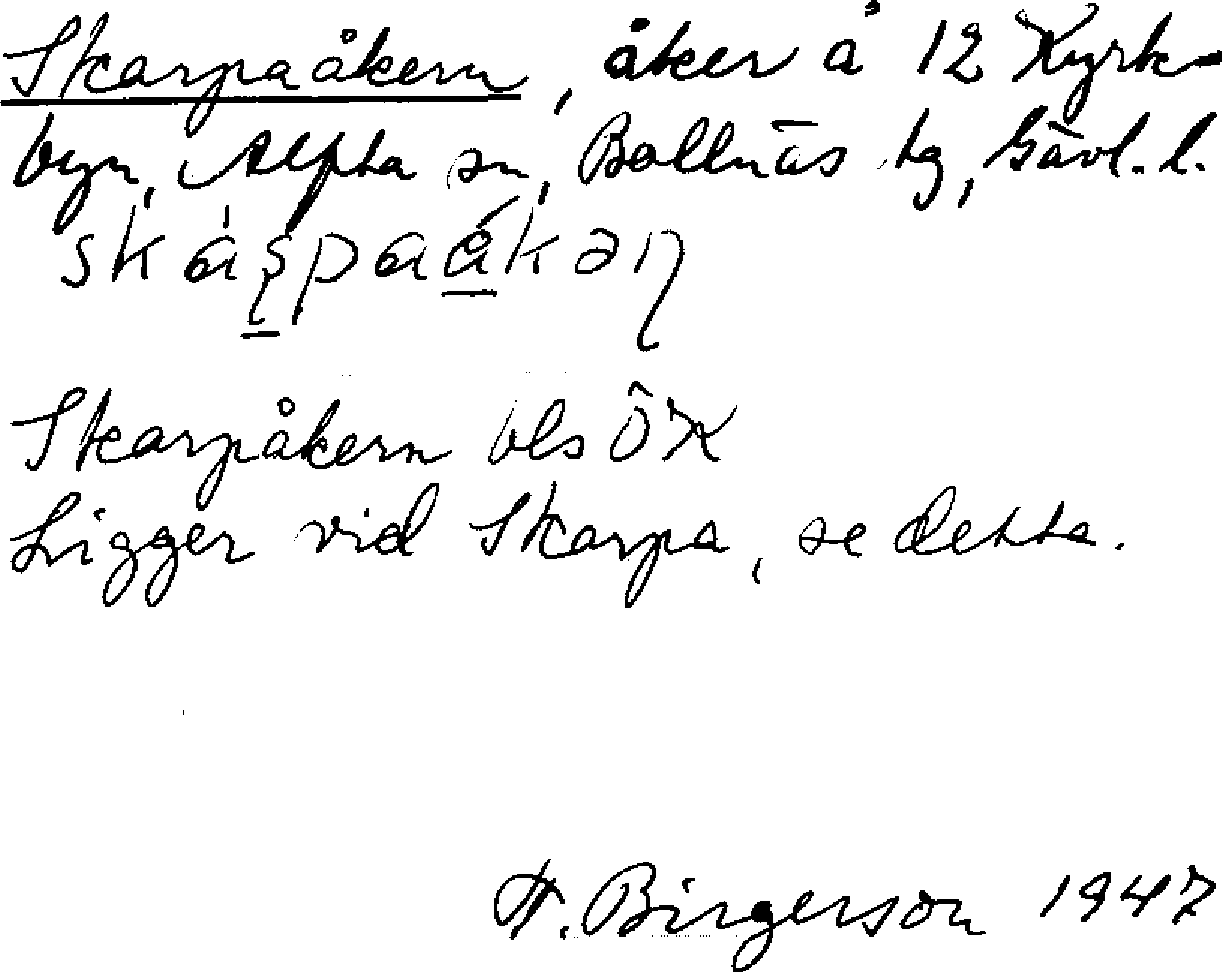 Skarpaåkern, åker å 12 Kyrk-
byn, Alfta sn, Bollnäs tg, Gävl. l.
Skarpåkern bls ÖK
Ligger vid Skarpa, se detta.
H. Birgerson 1947